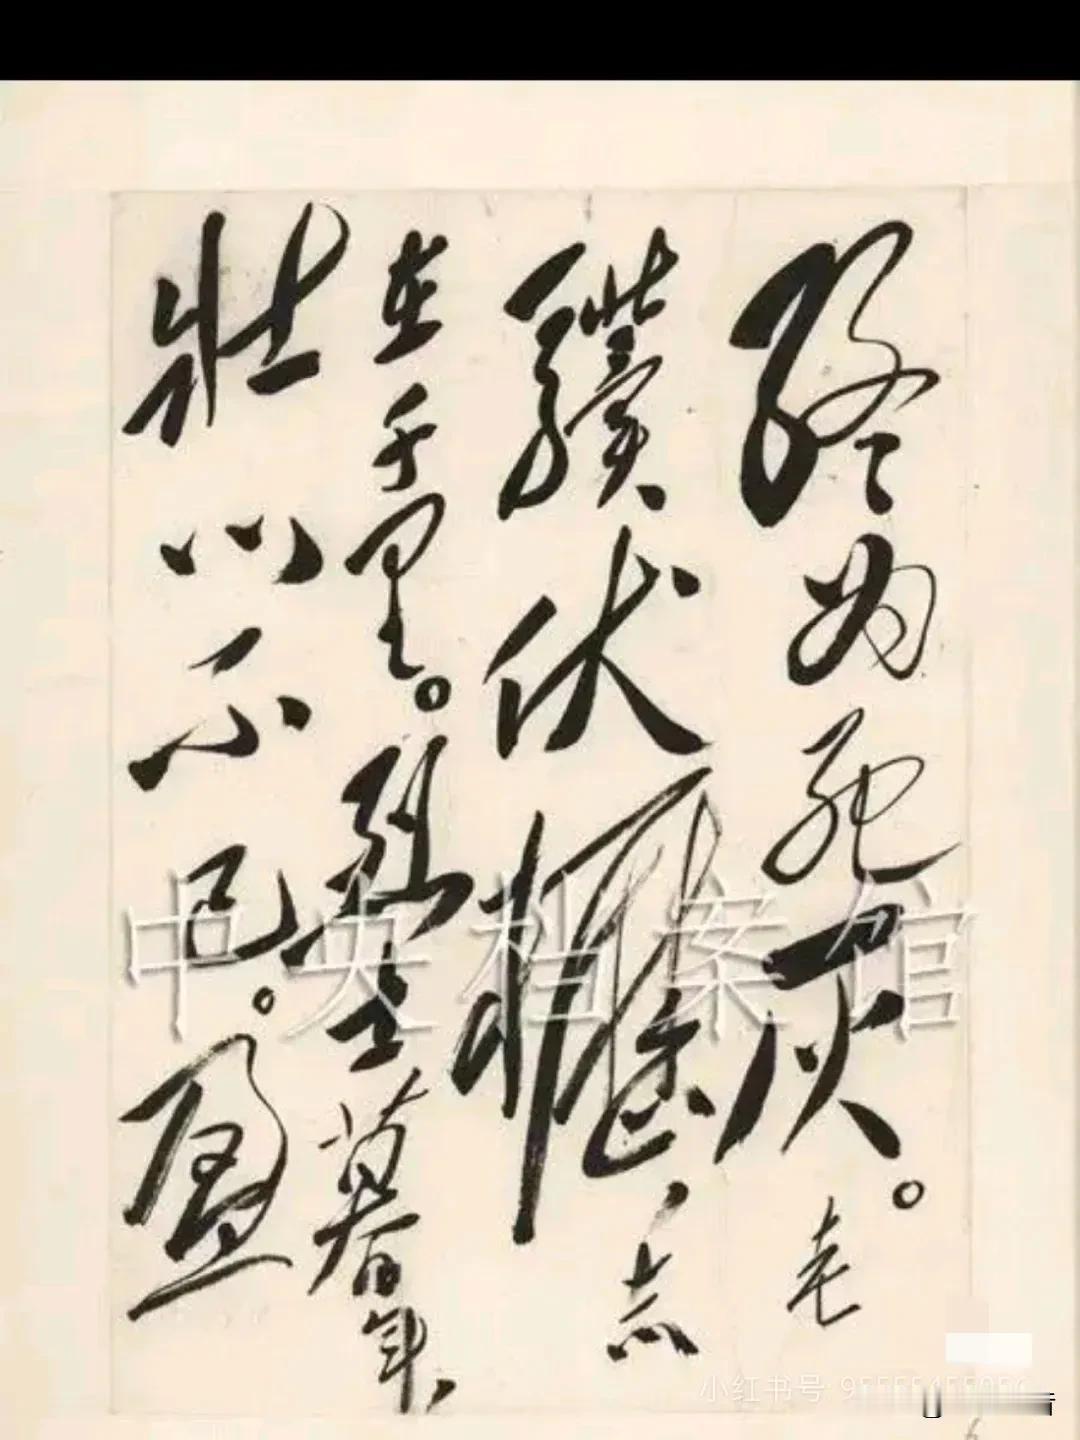 终为死灰。老
骥伏枥，志
在千里。烈士暮年，
壮心不已。盈
中央档案馆
小红书号: